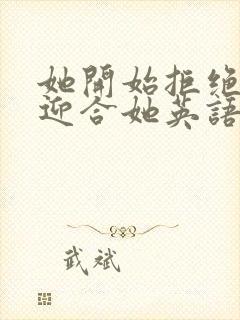 她開始拒絕
迎合她英語
武斌